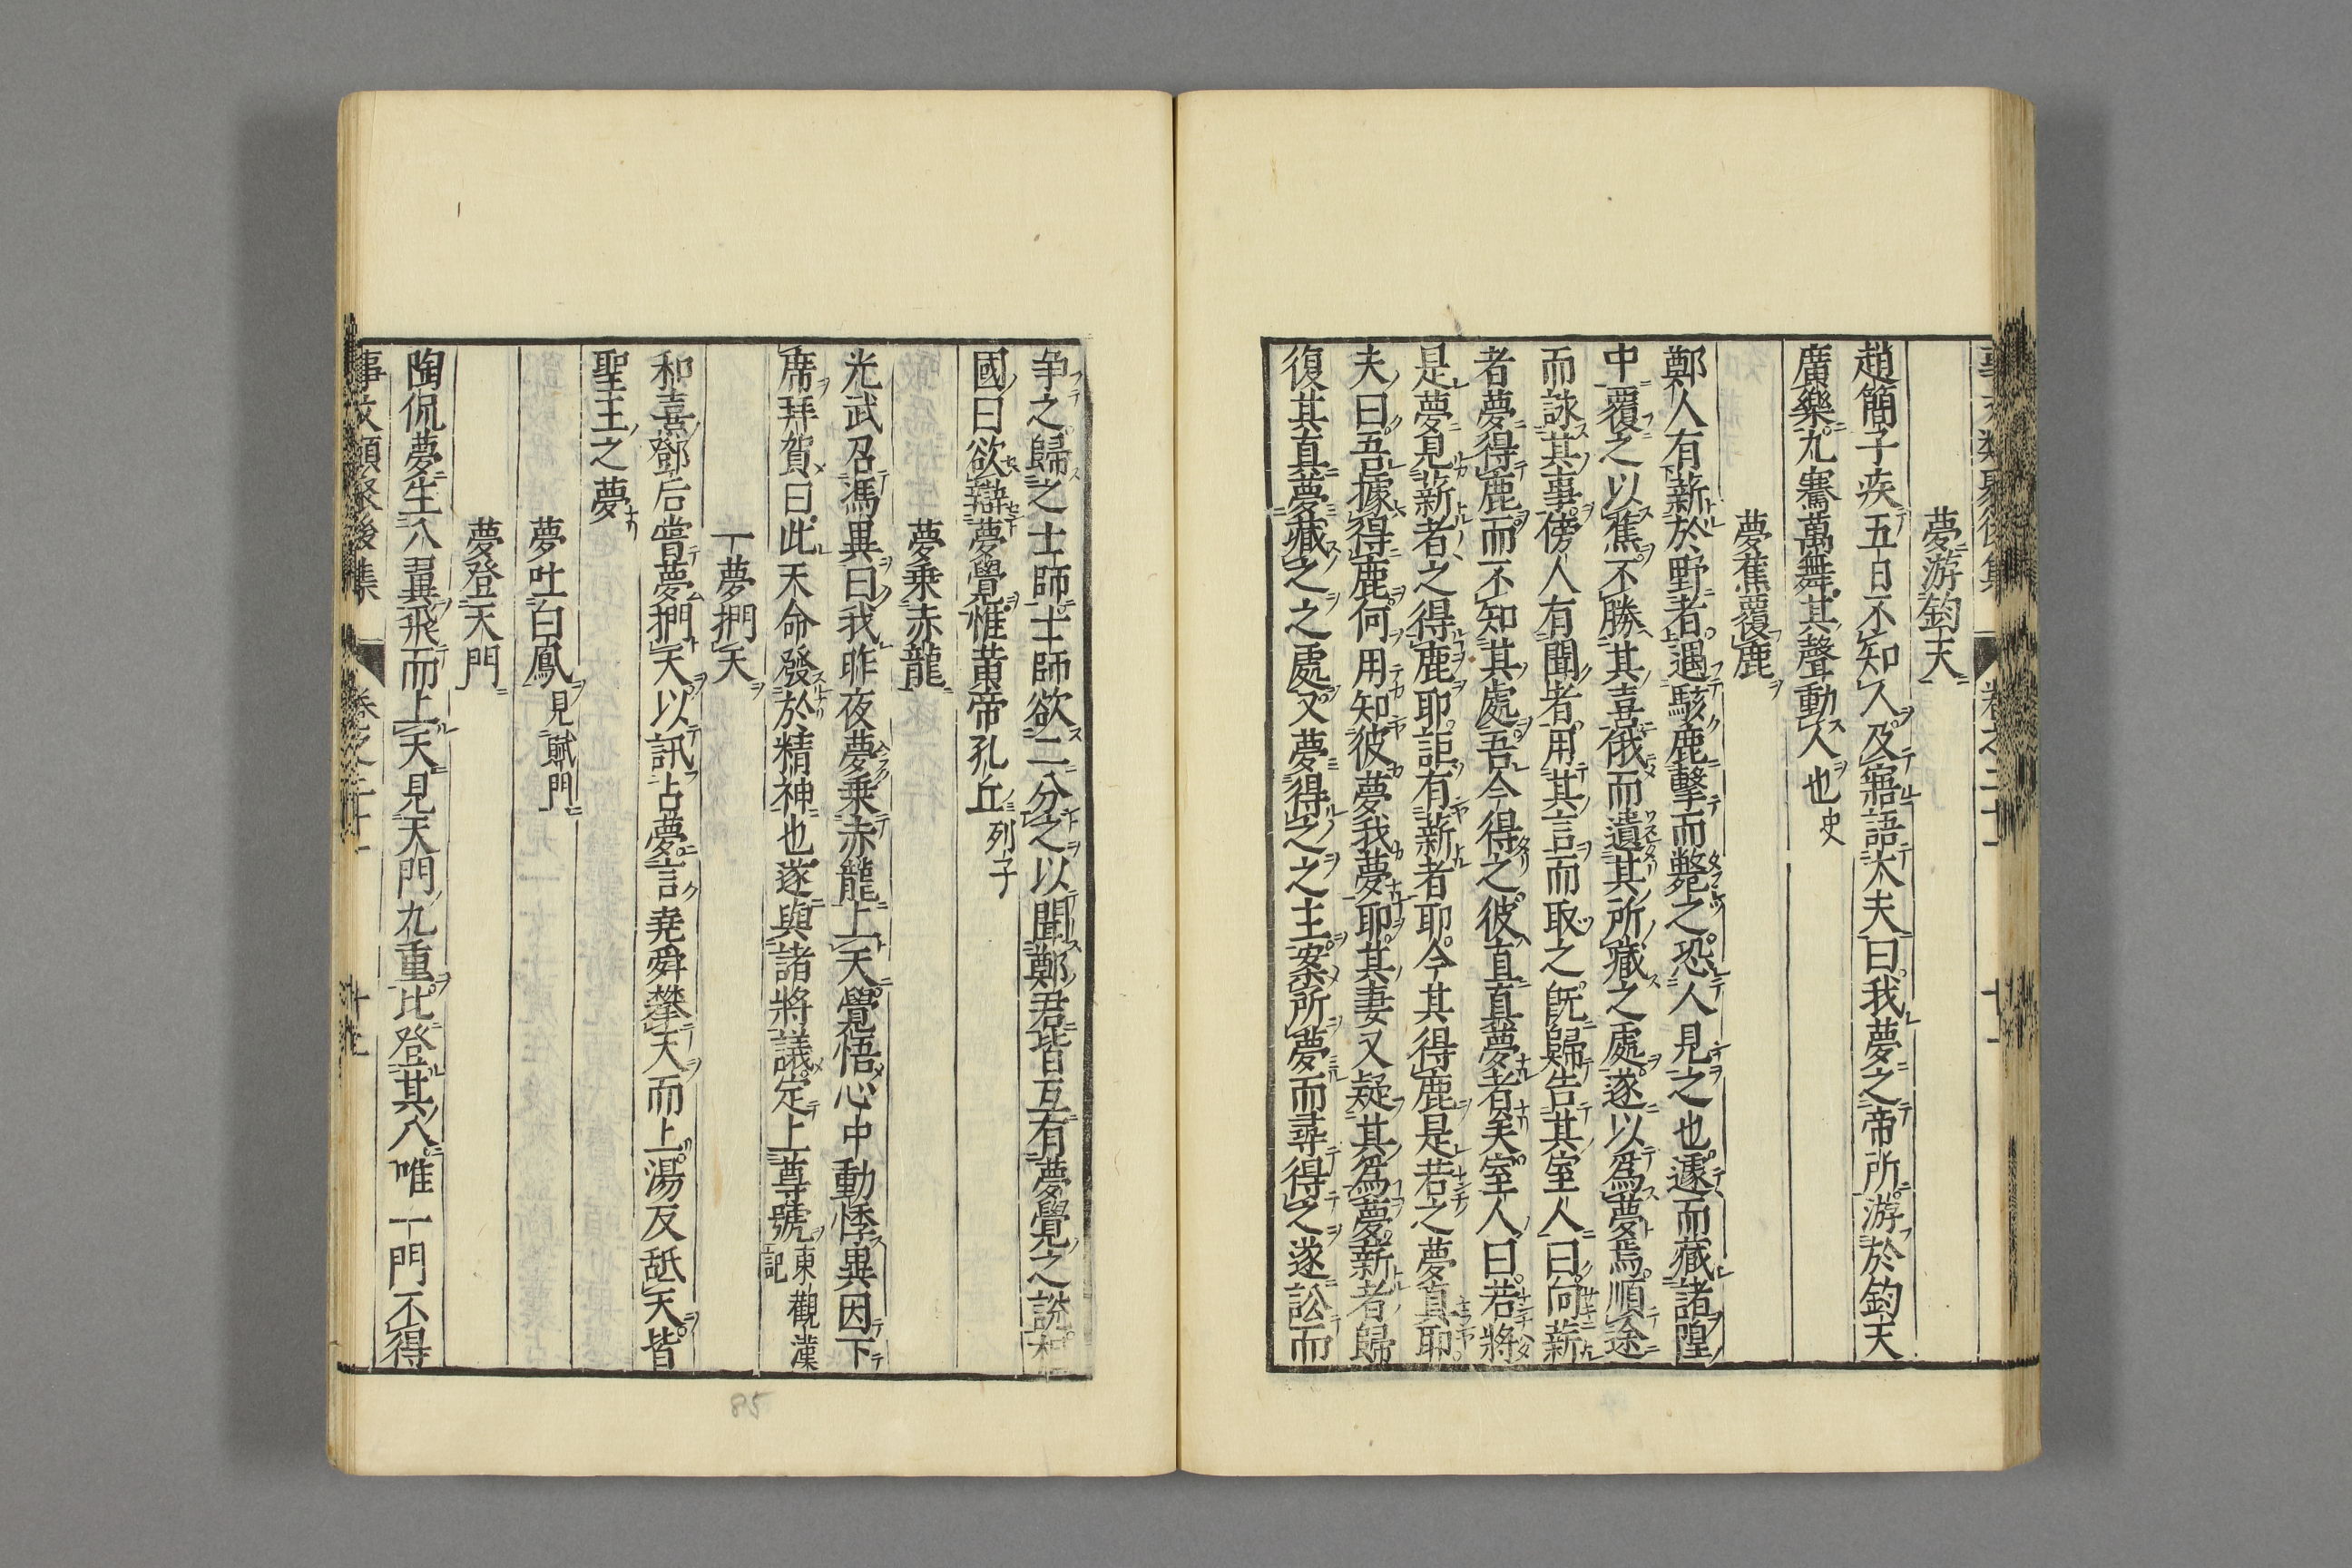 夢游鈞天
趙簡子疾五日不知人及寤語大夫曰我夢之帝所游於鈞天
廣樂九奏萬舞其聲動人也史
夢蕉覆鹿
鄭人有薪於野者遇駭鹿擊而斃之恐人見之也遽而藏諸隍
中覆之以蕉不勝其喜俄而遺其所藏之處遂以爲夢焉順途
而詠其事傍人有聞者用其言而取之旣歸告其室人曰向薪
者夢得鹿而不知其處吾今得之彼直真夢者矣室人曰若將
是夢見薪者之得鹿耶詎有薪者耶今其得鹿是若之夢真耶
夫曰吾據得鹿何用知彼夢我夢耶其妻又疑其爲夢薪者歸
復其真夢藏之之處又夢得之之主案所夢而尋得之遂訟而
争之歸之士師士師欲二分之以聞鄭君皆互有夢覺之說相
國曰欲辯夢覺惟黄帝孔丘列子
夢乗赤龍
光武召馮異曰我昨夜夢乗赤龍上天覺悟心中動悸異因下
席拜賀曰此天命發於精神也遂與諸將議定上尊號東觀漢記
一夢捫天
和熹鄧后嘗夢捫天以訊占夢言堯舜攀天而上湯及舐天皆
聖王之夢
夢吐白鳳見賦門
夢登天門
陶侃夢生八翼飛而上天見天門九重比登其八唯一門不得
事文類聚後集 卷之二十一